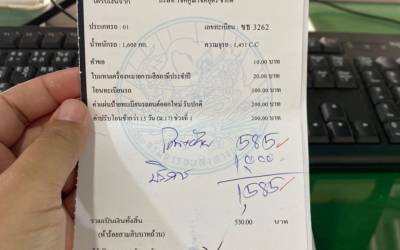 ประเภทรถ : 01 เลขทะเบียน : ขข 3262
น้ำหนักรถ : 1,600 กก. ความจุรถ : 1,451 C.C
คำขอ 10.00 บาท
ใบแทนเครื่องหมายการเสียภาษีประจำปี 20.00 บาท
โอนทะเบียนรถ 100.00 บาท
ค่าแผ่นป้ายทะเบียนรถยนต์ออกใหม่ รับปกติ 200.00 บาท
ค่าปรับโอนช้ากว่า 15 วัน (ม.17) ช่วงที่ 1 200.00 บาท
585
1,000
บริการ
1,585
รวมเป็นเงินทั้งสิ้น 530.00 บาท
(ห้าร้อยสามสิบบาทถ้วน)